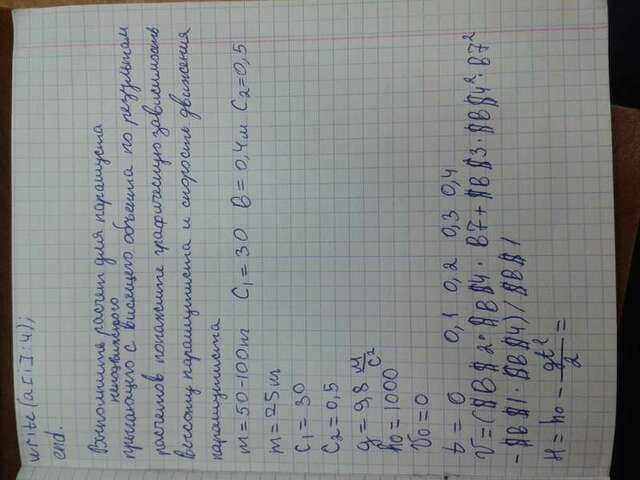 write(a[i]:4);
end.
Выполните расчет для парашуста
неподвижного
прыгающего с висящего объекта по результатам
расчетов покажите графическую зависимость
высоту парашутиста и скорость движения
парашутиста
m=50-100кг C₁=30 B=0,4м C₂=0,5
m=25кг
C₁=30
C₂=0,5
g=9,8 м/с²
h₀=1000
V₀=0
t=0 0,1 0,2 0,3 0,4
V=($B$2·$B$4·B7+$B$3·$B$4²·B7²
-$B$1·$B$4)/$B$1
H=h₀-gt²/2=